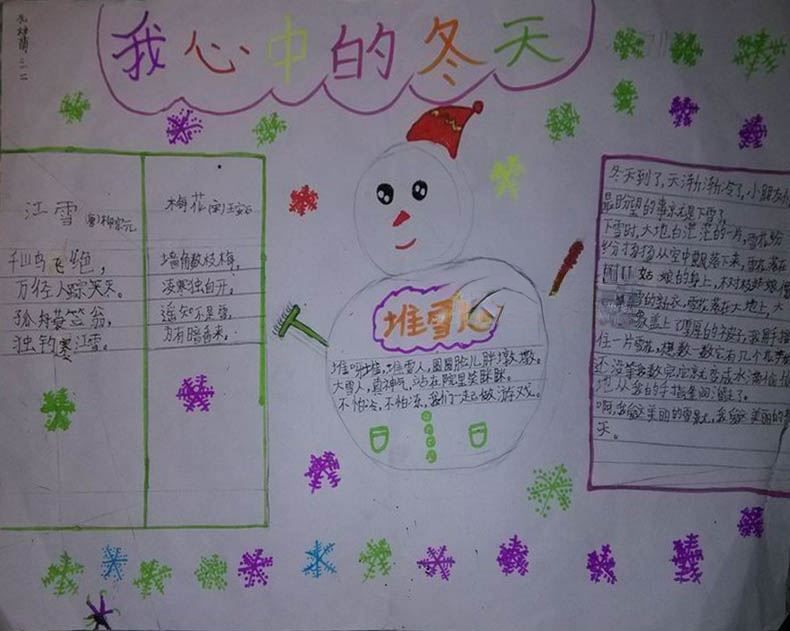 我心中的冬天
江雪
千山鸟飞绝，
万径人踪
孤舟蓑笠翁，
独钓寒江雪。
梅花 宋 王安石
墙角数枝梅，
凌寒独自开。
遥知不是雪，
为有暗香来。
堆雪人
堆呀堆，堆雪人，圆圆脸儿胖墩墩。
大雪人，真神气，站在院里笑眯眯。
不怕冷，不怕冻，我们一起做游戏。
冬天到了，天渐渐冷了，小朋友
最盼望的事就是下雪了。
下雪时，大地白茫茫的一片，雪花纷
纷扬扬从空中飘落下来，雪花落在
姑娘的身上，
的新衣，雪花落在大地上，
盖上了厚厚的被子，我用手接
住一片雪花，想数一数它有几个
还没等我数完它就变成水滴
地从我的手指里间溜走了。
啊，我爱这美丽的雪景，我爱这美丽的
天。